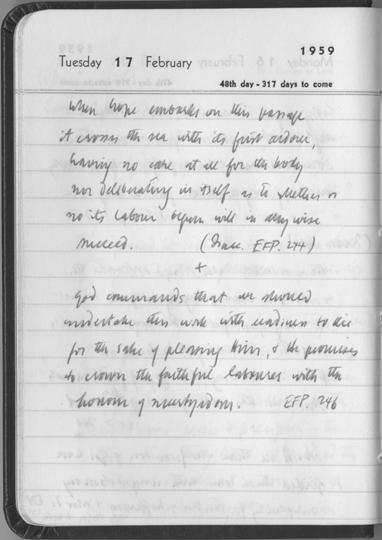 1959
Tuesday 17 February
48th day - 317 days to come
When hope embarks on this passage
it crosses the sea with its first ardour,
having no care at all for the body
nor deliberating in itself as to whether or
no its labour begun will in any wise
succeed. (Isaac. EFP. 244)
+
God commands that we should
undertake this work with readiness to die
for the sake of pleasing Him, & He promises
to crown the faithful labourer with the
honour of martyrdom. EFP. 246